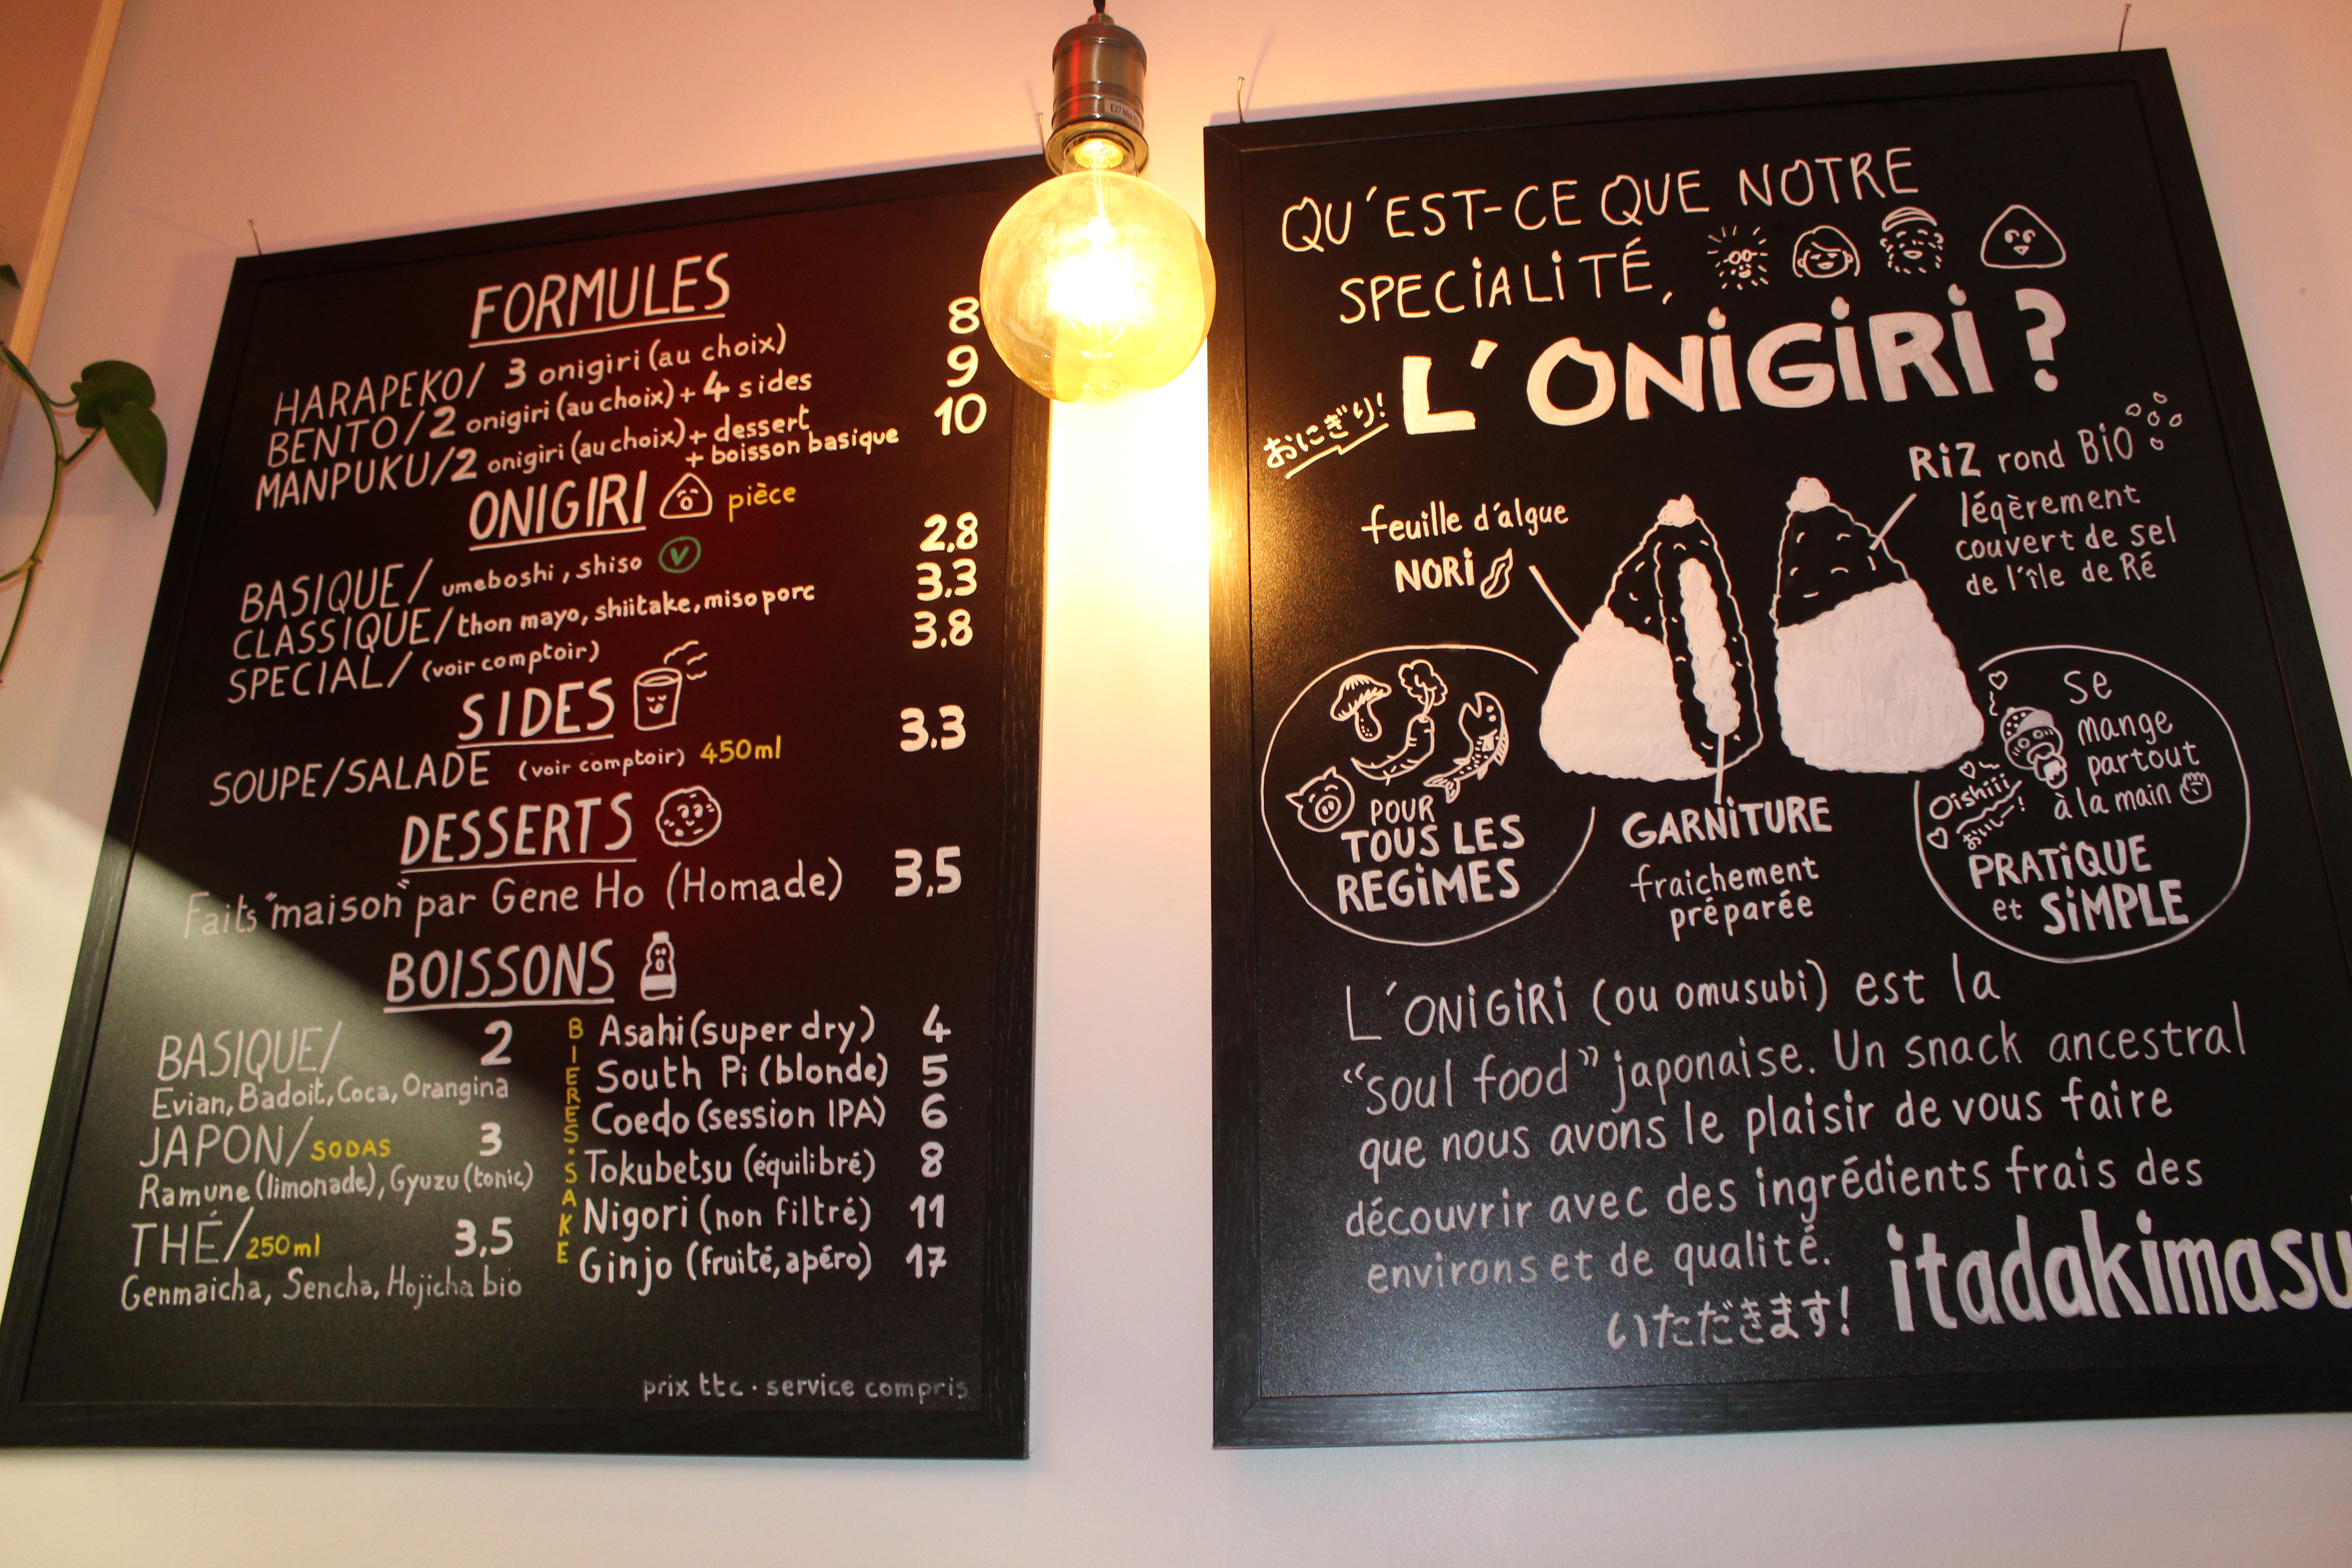 FORMULES
HARAPEKO/ 3 onigiri (au choix) 8
BENTO/2 onigiri (au choix) + 4 sides 9
MANPUKU/2 onigiri (au choix) + dessert 10
+ boisson basique
ONIGIRI pièce
BASIQUE/ umeboshi, shiso V 2,8
CLASSIQUE/ thon mayo, shiitake, miso porc 3.3
SPECIAL/ (voir comptoir) 3.8
SIDES
SOUPE/SALADE (voir comptoir) 450ml 3.3
DESSERTS
Faits "maison" par Gene Ho (Homade) 3,5
BOISSONS
BASIQUE/ 2
Evian, Badoit, Coca, Orangina
JAPON/SODAS 3
Ramune (limonade), Gyuzu (tonic)
THÉ/250ml 3,5
Genmaicha, Sencha, Hojicha bio
BIERES・SAKE
Asahi (super dry) 4
South Pi (blonde) 5
Coedo (session IPA) 6
Tokubetsu (équilibré) 8
Nigori (non filtré) 11
Ginjo (fruité, apéro) 17
prix ttc・service compris
QU'EST-CE QUE NOTRE
SPECIALITÉ,
L'ONIGIRI ?
おにぎり!
feuille d'algue
NORI
RIZ rond BIO
légèrement
couvert de sel
de l'île de Ré
POUR
TOUS LES
REGIMES
GARNITURE
fraichement
préparée
se
mange
partout
à la main
Oishiii
おいしー!
PRATIQUE
et SIMPLE
L'ONIGIRI (ou omusubi) est la
"soul food" japonaise. Un snack ancestral
que nous avons le plaisir de vous faire
découvrir avec des ingrédients frais des
environs et de qualité.
いただきます! itadakimasu